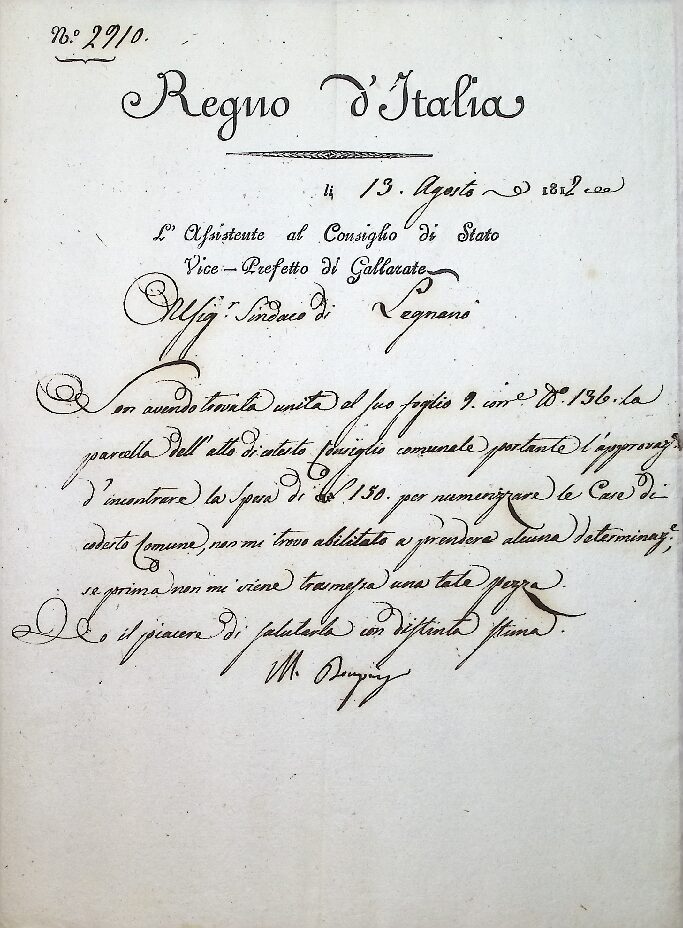 N.º 2910.
Regno d'Italia
li 13. Agosto 1812
L' Assistente al Consiglio di Stato
Vice-Prefetto di Gallarate
Al Sig.r Sindaco di Legnano
Non avendo trovata unita al suo foglio 9. corr.e N.º 136. la
parcella dell'atto di cotesto Consiglio comunale portante l'approvaz.e
d'incontrare la spesa di £ 150. per numerizzare le Case di
codesto Comune, non mi trovo abilitato a prendere alcuna determinaz.e,
se prima non mi viene trasmessa una tale pezza.
Ho il piacere di salutarla con distinta stima.
M.